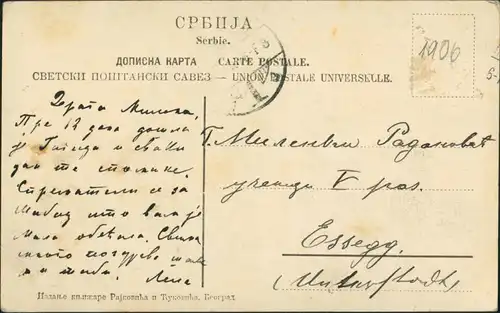 СРБИЈА
Serbie.
ДОПИСНА КАРТА CARTE POSTALE.
СВЕТСКИ ПОШТАНСКИ САВЕЗ – UNION POSTALE UNIVERSELLE.
1906
Драга Миленка,
Пре 12 дана дошла
је и сваки
дан те спомиње.
се за
што вам је
мала обећала. Свима
много поздрава
и теби. Лепа
Г. Миленки Радановић
ученици V раз.
Essegg.
(Unterstadt)
Издање књижаре Рајковића и Ћуковића, Београд